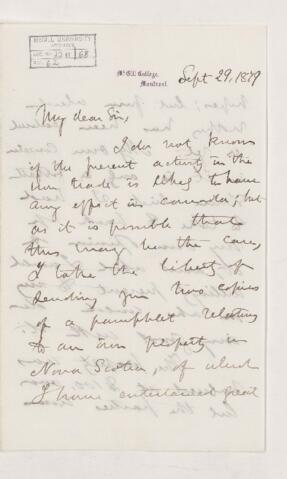 McGILL UNIVERSITY
ARCHIVES
ACC. NO.
REF. 62
McGill College,
Montreal.
Sept 29, 1879
My dear Sir,
I do not know
if the present activity in the
iron trade is likely to have
any effect in ; but
as it is possible that
this may be the case,
I take the liberty of
sending you two copies
of a pamphlet relating
to an iron property in
Nova Scotia, of which
I have entertained great